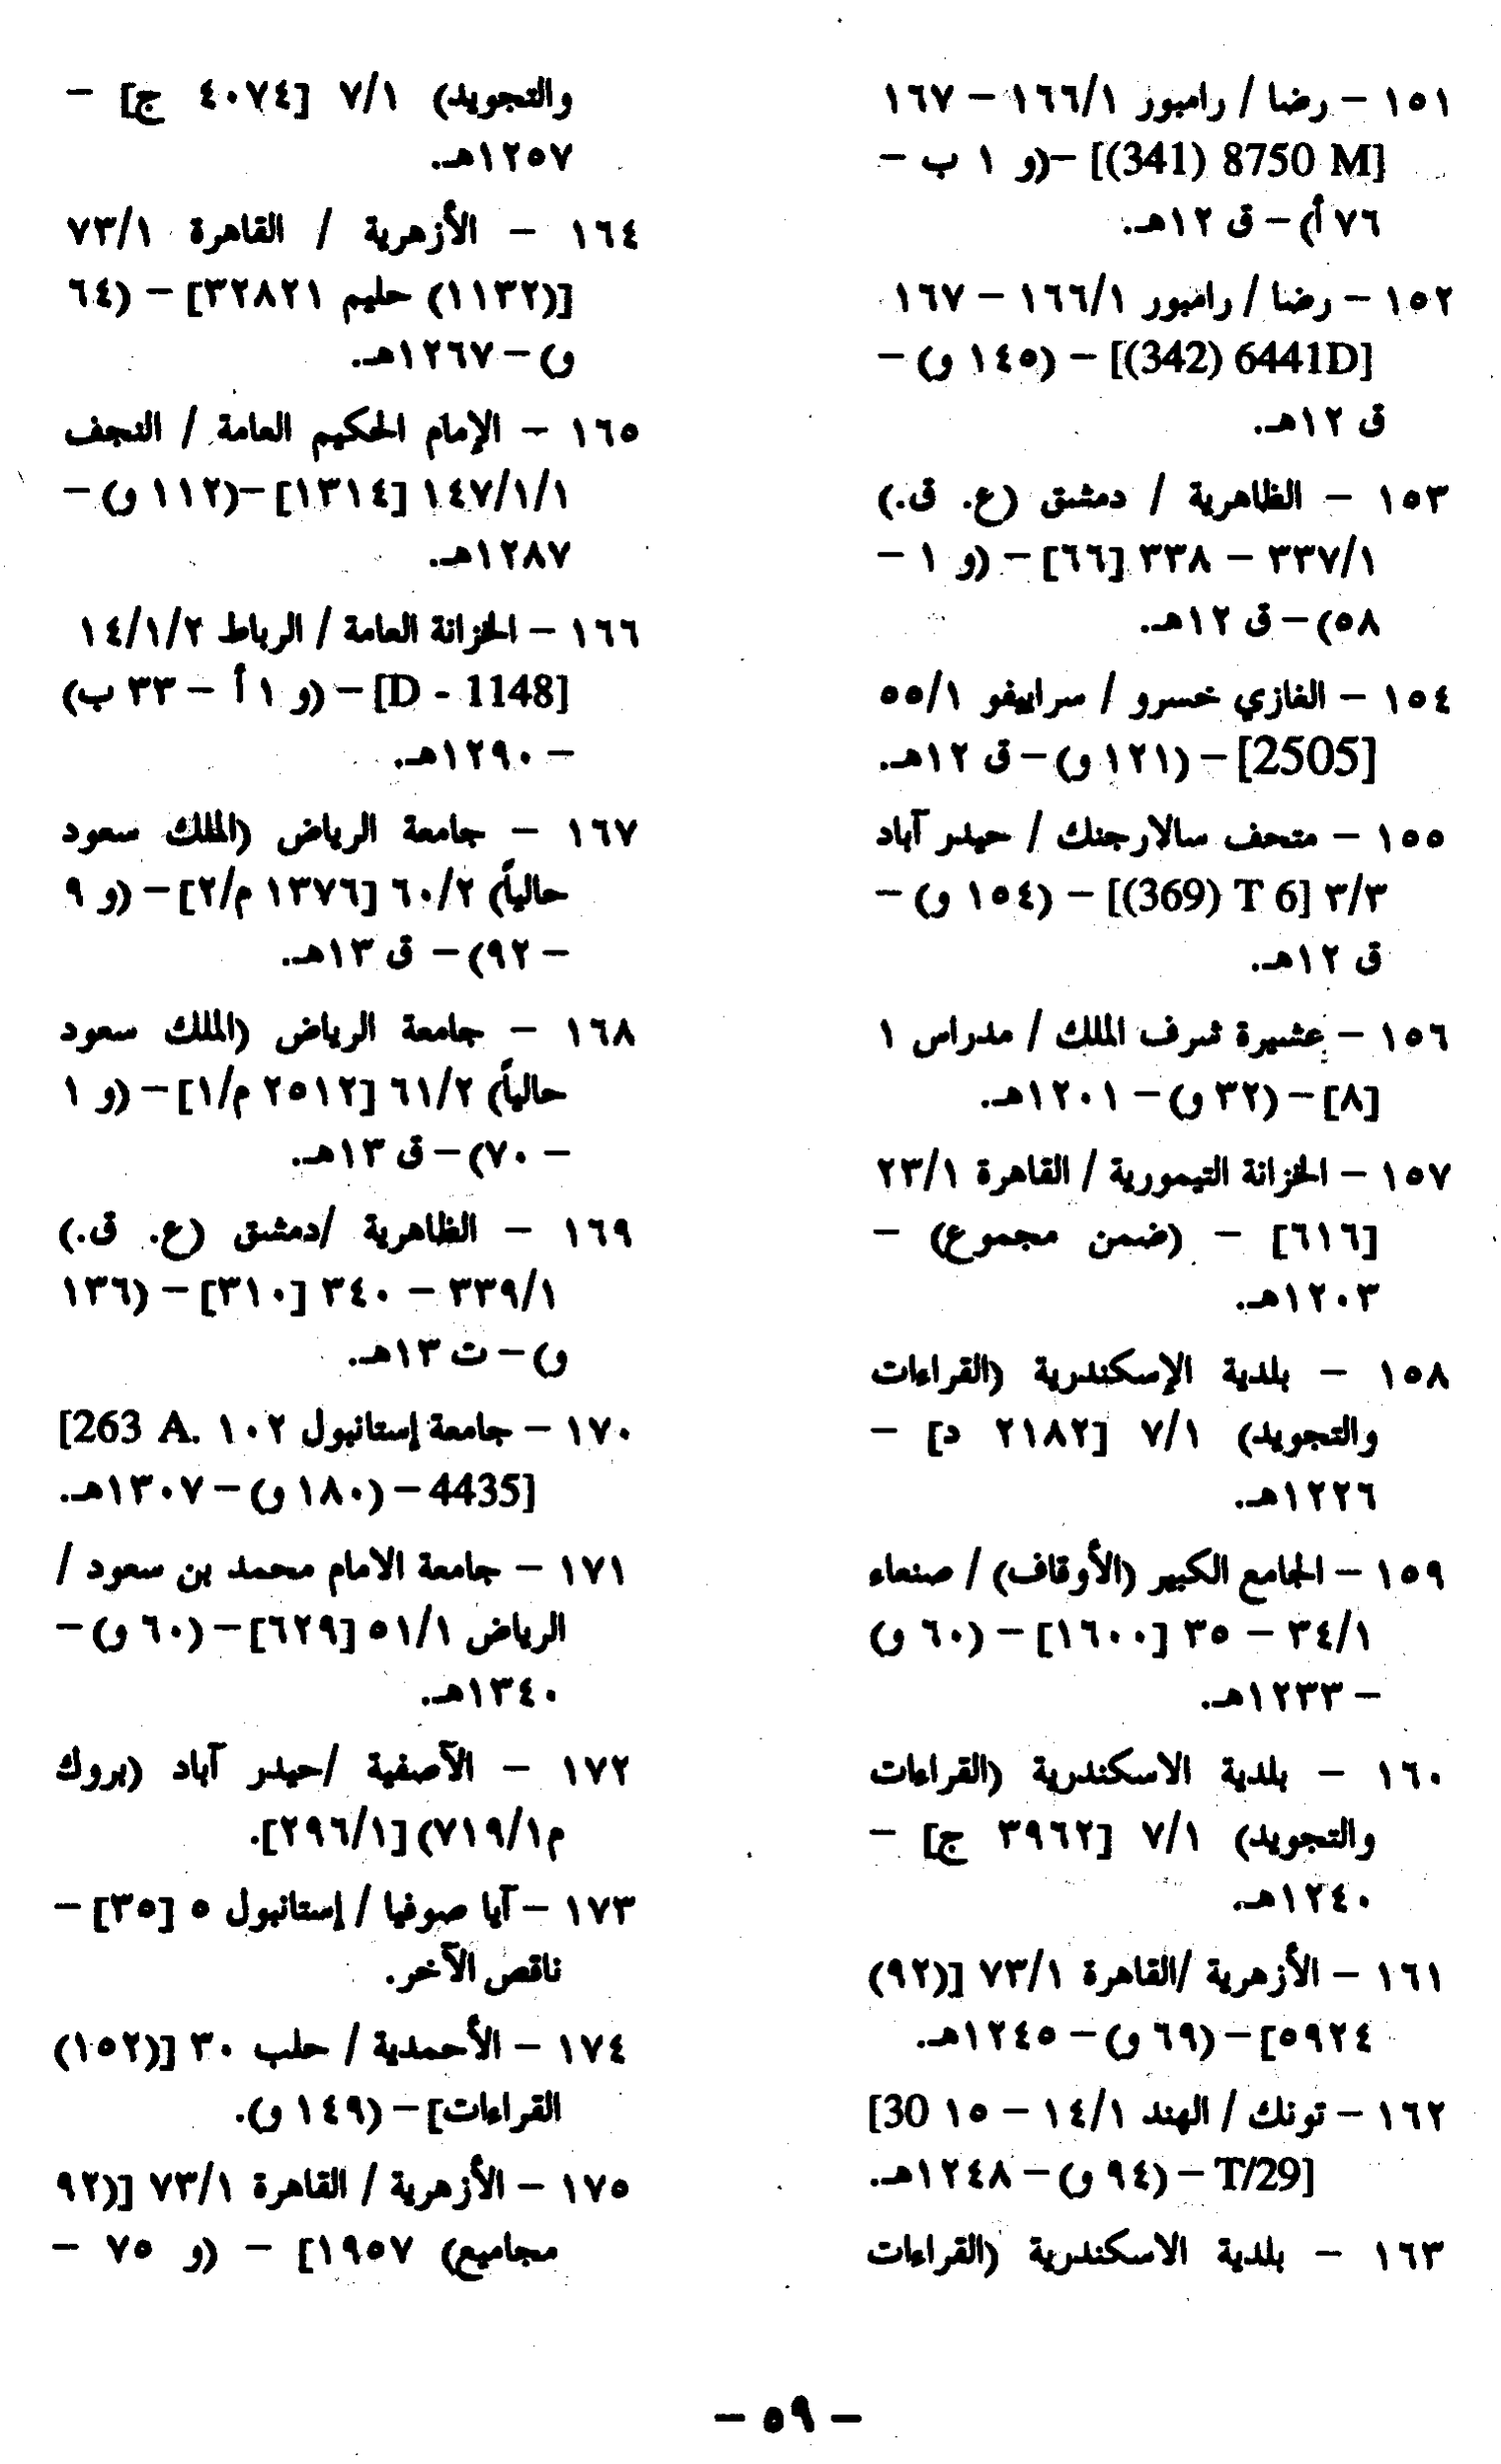 ١٥١ – رضا / رامبور ١٦٦/١ – ١٦٧
[8750 M (341)] –(و ١ ب –
٧٦ أ) – ق ١٢هـ.
١٥٢ – رضا / رامبور ١٦٦/١ – ١٦٧
[(342) 6441D] – (١٤٥ و) –
ق ١٢هـ.
١٥٣ – الظاهرية / دمشق (ع. ق.)
٣٣٧/١ – ٣٣٨ [٦٦] – (و ١ –
٥٨) – ق ١٢هـ.
١٥٤ – الغازي خسرو / سراييفو ٥٥/١
[2505] – (١٢١ و) – ق ١٢هـ.
١٥٥ – متحف سالارجنك / حيدر آباد
٣/٣ [T 6 (369)] – (١٥٤ و) –
ق ١٢هـ.
١٥٦ – عشيرة شرف الملك / مدراس ١
[٨] – (٣٢ و) – ١٢٠١هـ.
١٥٧ – الخزانة التيمورية / القاهرة ٢٣/١
[٦١٦] – (ضمن مجموع) –
١٢٠٣هـ.
١٥٨ – بلدية الإسكندرية (القراءات
والتجويد) ٧/١ [٢١٨٢ د] –
١٢٢٦هـ.
١٥٩ – الجامع الكبير (الأوقاف) / صنعاء
٣٤/١ – ٣٥ [١٦٠٠] – (٦٠ و)
– ١٢٣٣هـ.
١٦٠ – بلدية الاسكندرية (القراءات
والتجويد) ٧/١ [٣٩٦٢ ج] –
١٢٤٠هـ.
١٦١ – الأزهرية /القاهرة ٧٣/١ [(٩٢)
٥٩٢٤] – (٦٩ و) – ١٢٤٥هـ.
١٦٢ – تونك / الهند ١٤/١ – ١٥ [30
T/29] – (٩٤ و) – ١٢٤٨هـ.
١٦٣ – بلدية الاسكندرية (القراءات
والتجويد) ٧/١ [٤٠٧٤ ج] –
١٢٥٧هـ.
١٦٤ – الأزهرية / القاهرة ٧٣/١
[(١١٣٢) حليم ٣٢٨٢١] – (٦٤
و) – ١٢٦٧هـ.
١٦٥ – الإمام الحكيم العامة / النجف
١٤٧/١/١ [١٣١٤] –(١١٢ و) –
١٢٨٧هـ.
١٦٦ – الخزانة العامة / الرباط ١٤/١/٢
[D - 1148] – (و ١ أ – ٣٣ ب)
– ١٢٩٠هـ.
١٦٧ – جامعة الرياض (الملك سعود
حالياً) ٦٠/٢ [١٣٧٦ م/٢] – (و ٩
– ٩٢) – ق ١٣هـ.
١٦٨ – جامعة الرياض (الملك سعود
حالياً) ٦١/٢ [٢٥١٢ م/١] – (و ١
– ٧٠) – ق ١٣هـ.
١٦٩ – الظاهرية /دمشق (ع. ق.)
٣٣٩/١ – ٣٤٠ [٣١٠] – (١٣٦
و) – ت ١٣هـ.
١٧٠ – جامعة إستانبول ١٠٢ [263 A.
4435] – (١٨٠ و) – ١٣٠٧هـ.
١٧١ – جامعة الامام محمد بن سعود /
الرياض ٥١/١ [٦٢٩] – (٦٠ و) –
١٣٤٠هـ.
١٧٢ – الآصفية /حيدر آباد (بروك
م٧١٩/١) [٢٩٦/١].
١٧٣ – آيا صوفيا / إستانبول ٥ [٣٥] –
ناقص الآخر.
١٧٤ – الأحمدية / حلب ٣٠ [(١٥٢)
القراءات] – (١٤٩ و).
١٧٥ – الأزهرية / القاهرة ٧٣/١ [(٩٢
مجاميع) ١٩٥٧] – (و ٧٥ –
– ٥٩ –